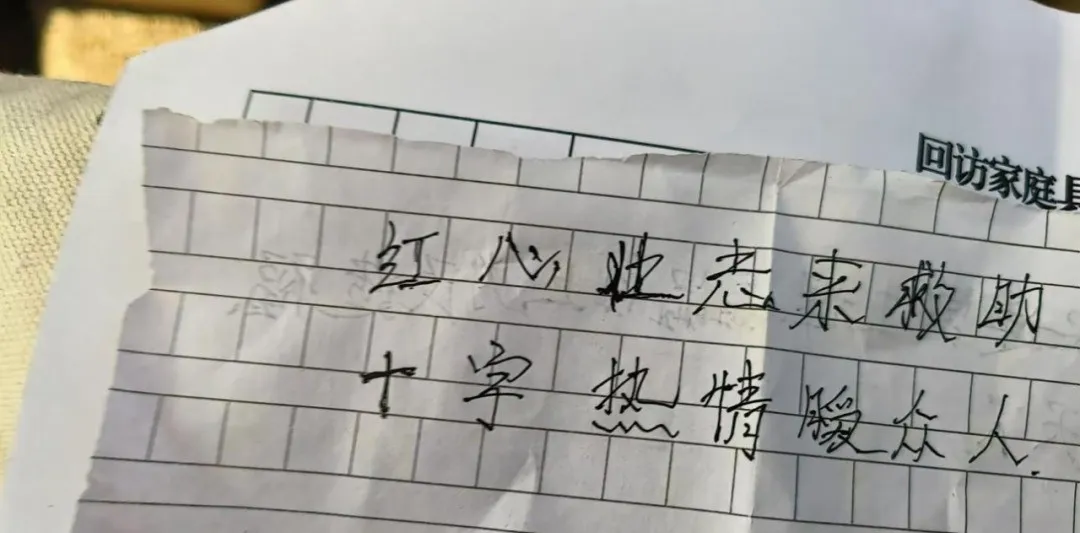 回访家庭县
红心壮志来救助
十字热情暖众人.